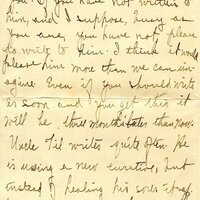 you. If you have not written to
him, and I suppose, busy as
you are, you have not, please
do write to him. I think it would
please him more than we can im-
agine. Even if you should write
as soon as you get this it
will be three months later than now.
Uncle Sil writes quite often. He
is using a new curative, but
instead of healing his sores